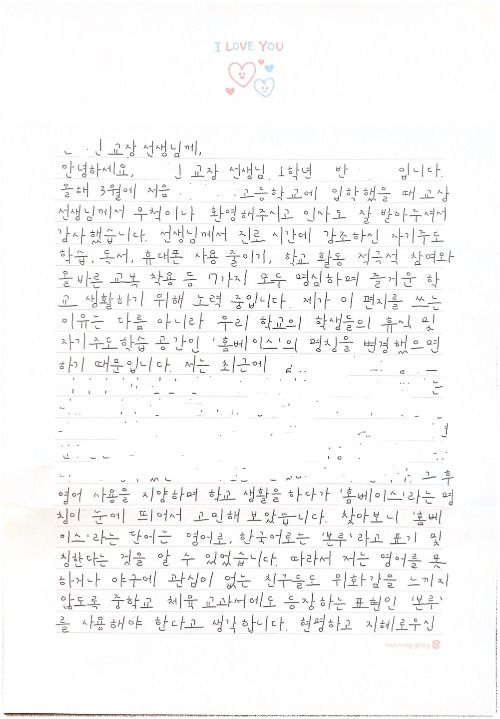 I LOVE YOU
교장 선생님께,
안녕하세요, 교장 선생님. 1학년 반 입니다.
올해 3월에 처음 고등학교에 입학했을 때 교장
선생님께서 무척이나 환영해주시고 인사도 잘 받아주셔서
감사했습니다. 선생님께서 진로 시간에 강조하신 자기주도
학습, 독서, 휴대폰 사용 줄이기, 학교 활동 적극적 참여와
올바른 교복 착용 등 7가지 모두 명심하며 즐거운 학
교 생활하기 위해 노력 중입니다. 제가 이 편지를 쓰는
이유는 다름 아니라 우리 학교의 학생들의 휴식 및
자기주도학습 공간인 '홈베이스'의 명칭을 변경했으면
하기 때문입니다. 저는 최근에
는
그 후
영어 사용을 지양하며 학교 생활을 하다가 '홈베이스'라는 명
칭이 눈에 띄어서 고민해 보았습니다. 찾아보니 '홈베
이스'라는 단어는 영어로, 한국어로는 '본루'라고 표기 및
칭한다는 것을 알 수 있었습니다. 따라서 저는 영어를 못
하거나 야구에 관심이 없는 친구들도 위화감을 느끼지
않도록 중학교 체육 교과서에도 등장하는 표현인 '본루'
를 사용해야 한다고 생각합니다. 현명하고 지혜로우신
morning glory